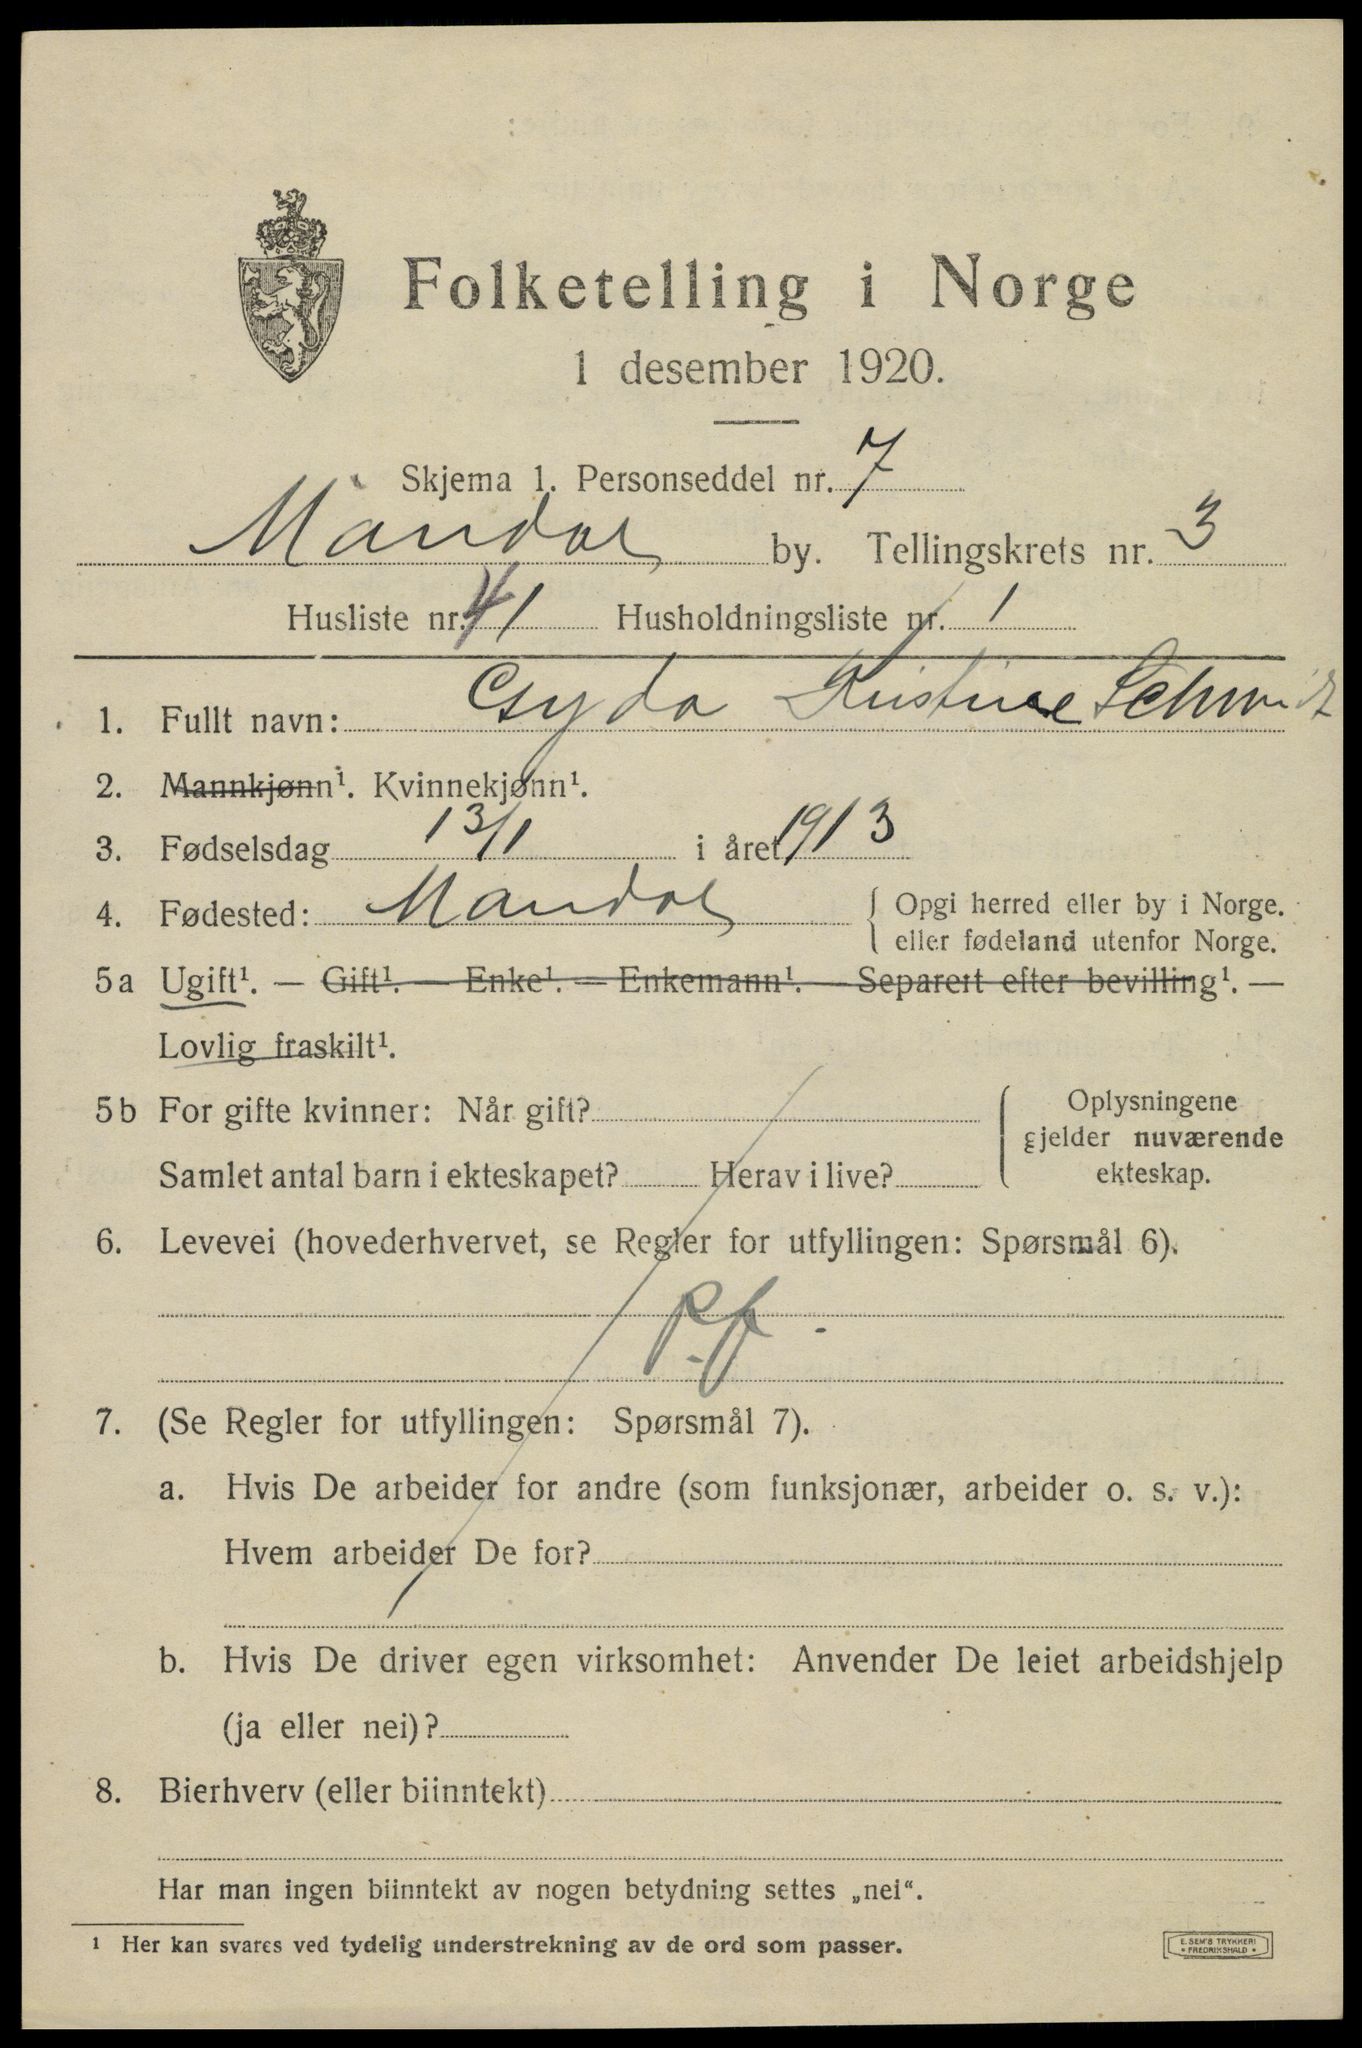 Folketelling i Norge
1 desember 1920.
Skjema 1. Personseddel nr. 7
Mandal by. Tellingskrets nr. 3
Husliste nr. 41 Husholdningsliste nr. 1
1. Fullt navn: Gyda Kristine Schmidt
2. Mannkjønn¹. Kvinnekjønn¹.
3. Fødselsdag 13/1 i året 1913
4. Fødested: Mandal { Opgi herred eller by i Norge.
eller fødeland utenfor Norge.
5a Ugift¹. — Gift¹. — Enke¹. — Enkemann¹. — Separert efter bevilling¹. —
Lovlig fraskilt¹.
5b For gifte kvinner: Når gift? { Oplysningene
gjelder nuværende
Samlet antal barn i ekteskapet? Herav i live? ekteskap.
6. Levevei (hovederhvervet, se Regler for utfyllingen: Spørsmål 6).
p.f.
7. (Se Regler for utfyllingen: Spørsmål 7).
a. Hvis De arbeider for andre (som funksjonær, arbeider o. s. v.):
Hvem arbeider De for?
b. Hvis De driver egen virksomhet: Anvender De leiet arbeidshjelp
(ja eller nei)?
8. Bierhverv (eller biinntekt)
Har man ingen biinntekt av nogen betydning settes „nei“.
¹ Her kan svares ved tydelig understrekning av de ord som passer.
E. SEM'S TRYKKERI
• FREDRIKSHALD •